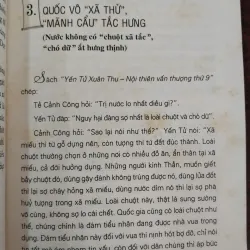 3. QUỐC VÔ "XÃ THỬ",
"MÃNH CẨU" TẮC HƯNG
(Nước không có "chuột xã tắc",
"chó dữ" ắt hưng thịnh)
Sách "Yến Tử Xuân Thu – Nội thiên vấn thượng thứ 9"
chép:
Tề Cảnh Công hỏi: "Trị nước lo nhất điều gì?".
Yến Tử đáp: "Nguy hại đáng sợ nhất là loài chuột và chó dữ".
Cảnh Công hỏi: "Sao lại nói như thế?" Yến Tử nói: "Xã
miếu thì tú gỗ dựng nên, còn tượng thì tú đất đúc thành. Loài
chuột thường chọn ở những nơi có nhiều đồ ăn, ẩn thân tại xã
miếu, cả đời hưởng dụng. Những người kính Thần, muốn giết
bầy chuột đó, dùng gậy đánh không trúng được nó, dùng lửa đốt
thì lại sợ cháy hỏng xã miếu, dùng nước dìm nó thì lại sợ phá
huỷ tượng ở trong miếu. Loài chuột này, thật là sung sướng
vô cùng, không gì so được. Quốc gia cũng có loài chuột như
thế, chúng chính là đám tiểu nhân đang được nhà vua trong
dụng. Đám tiểu nhân này đối với vua thì nịnh hót bợ đỡ, chỉ nói